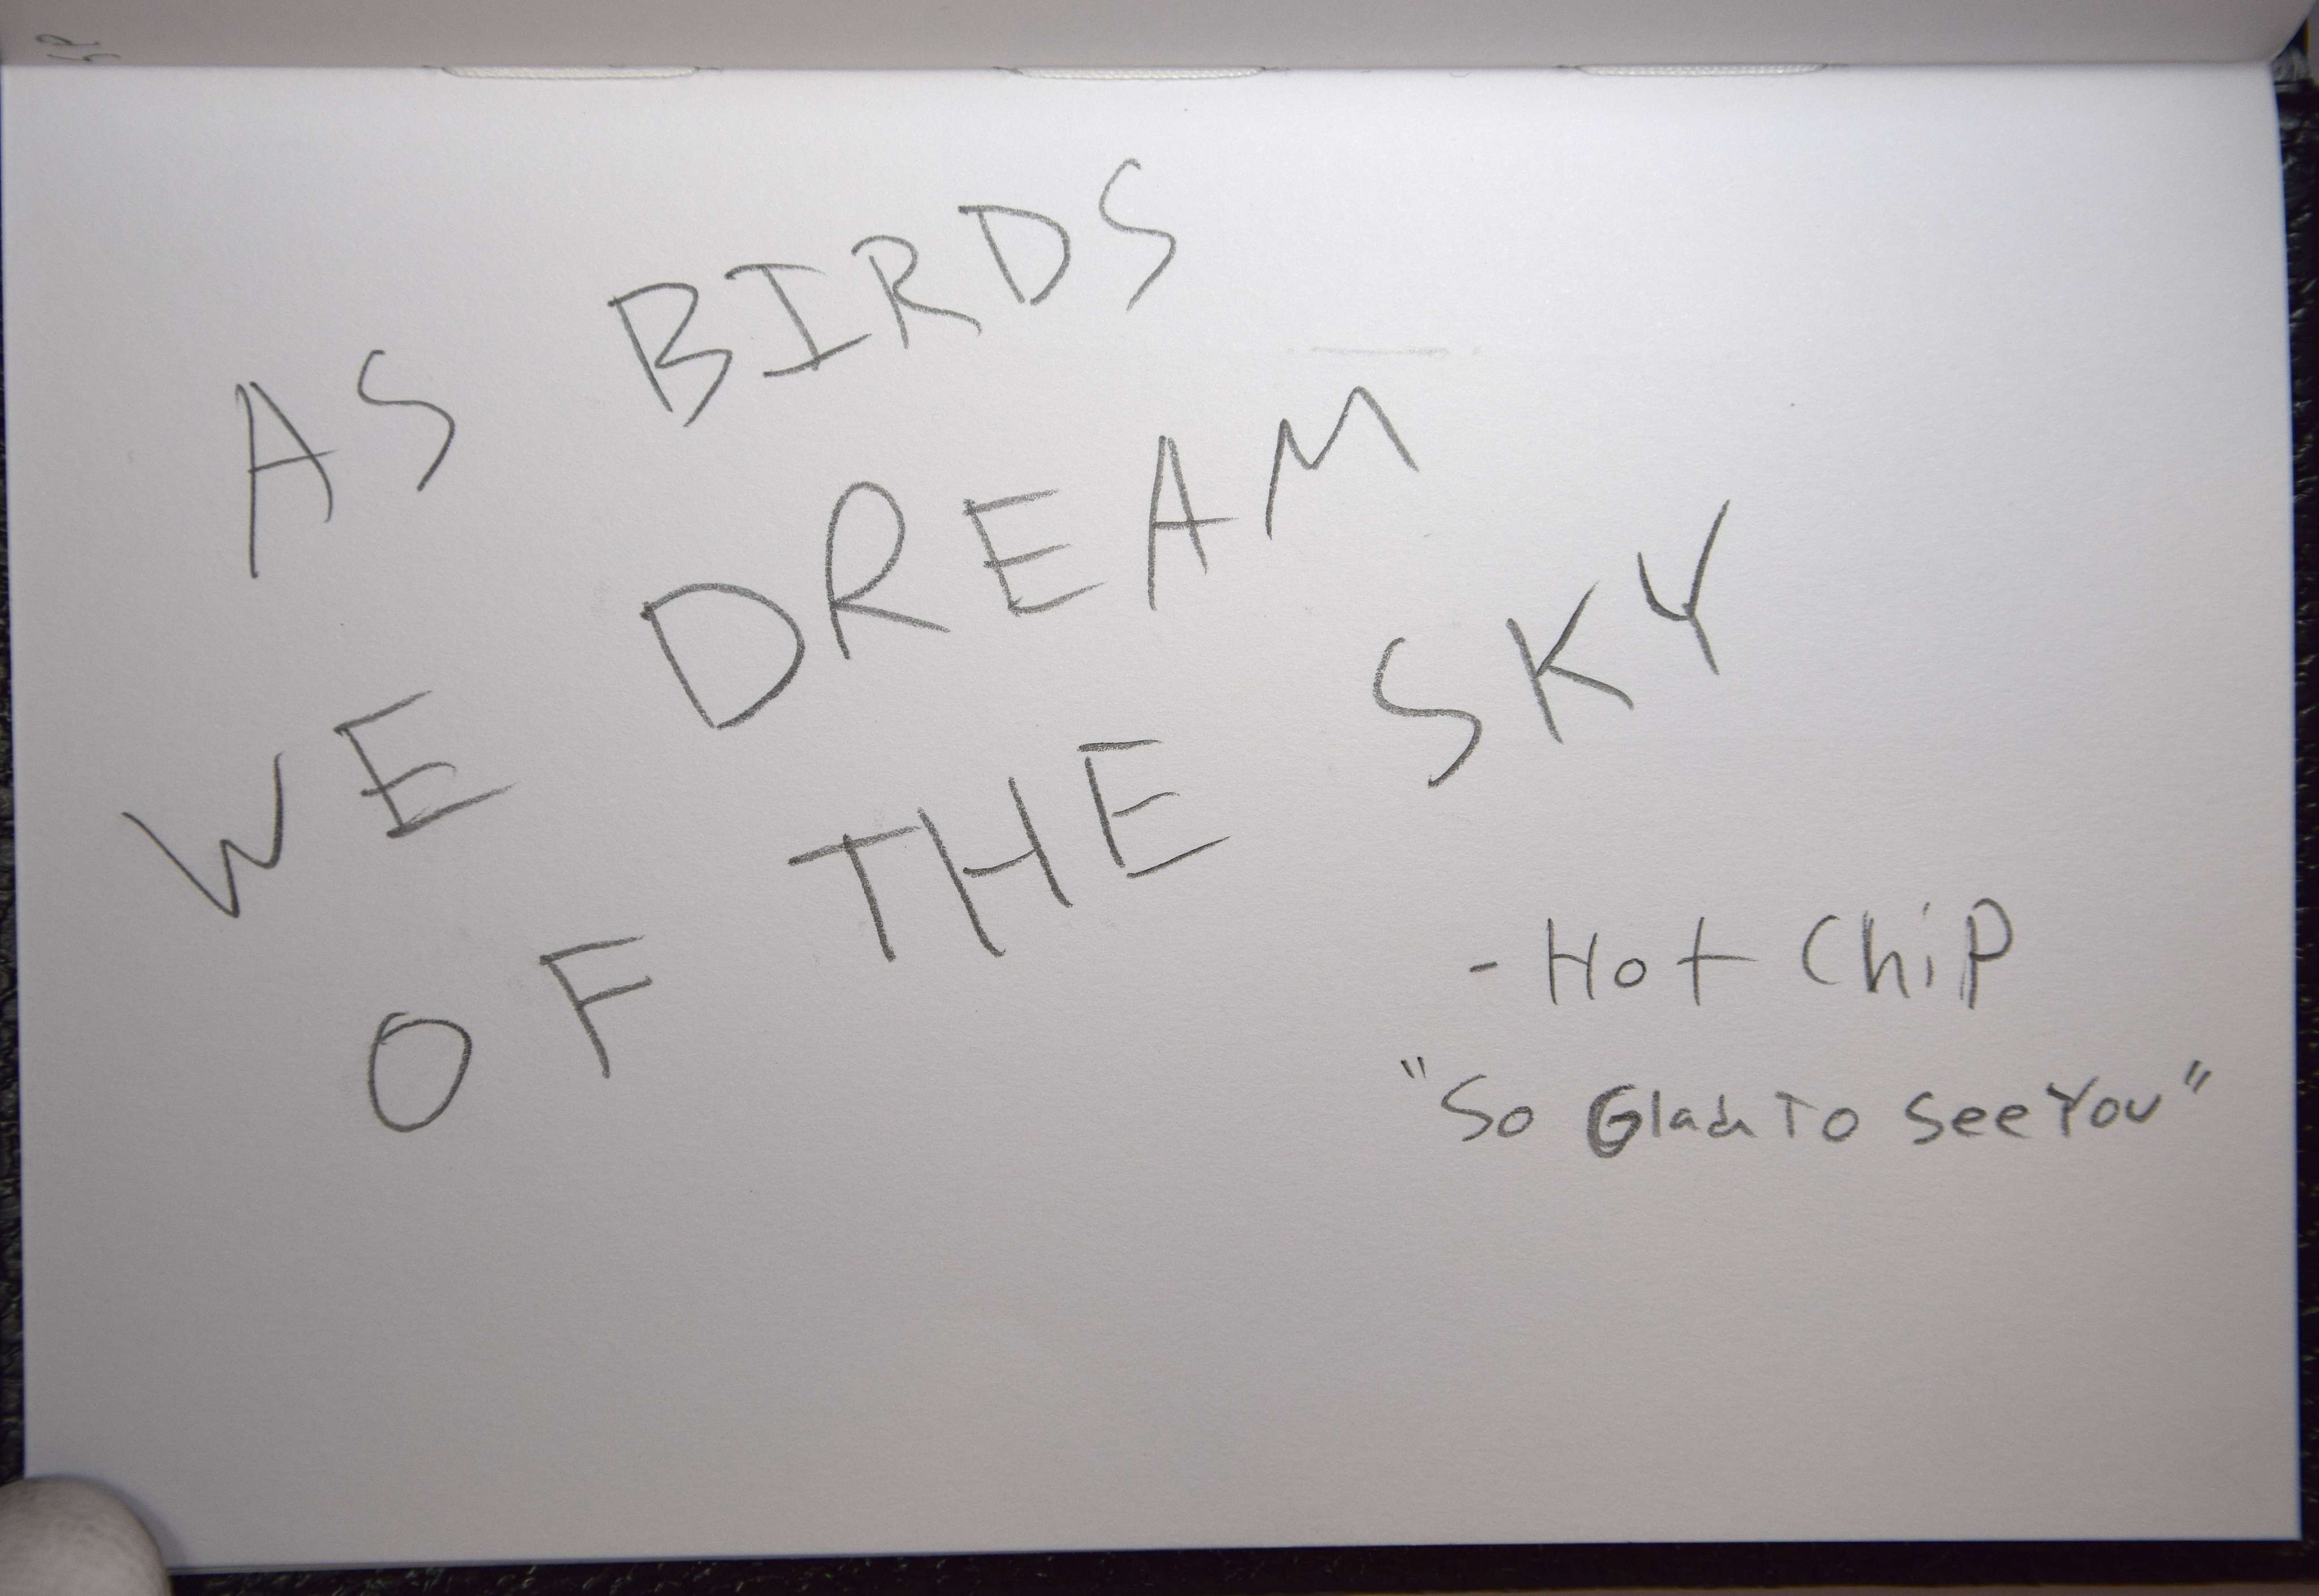 AS BIRDS
WE DREAM
OF THE SKY
- Hot Chip
"So Glad To See You"